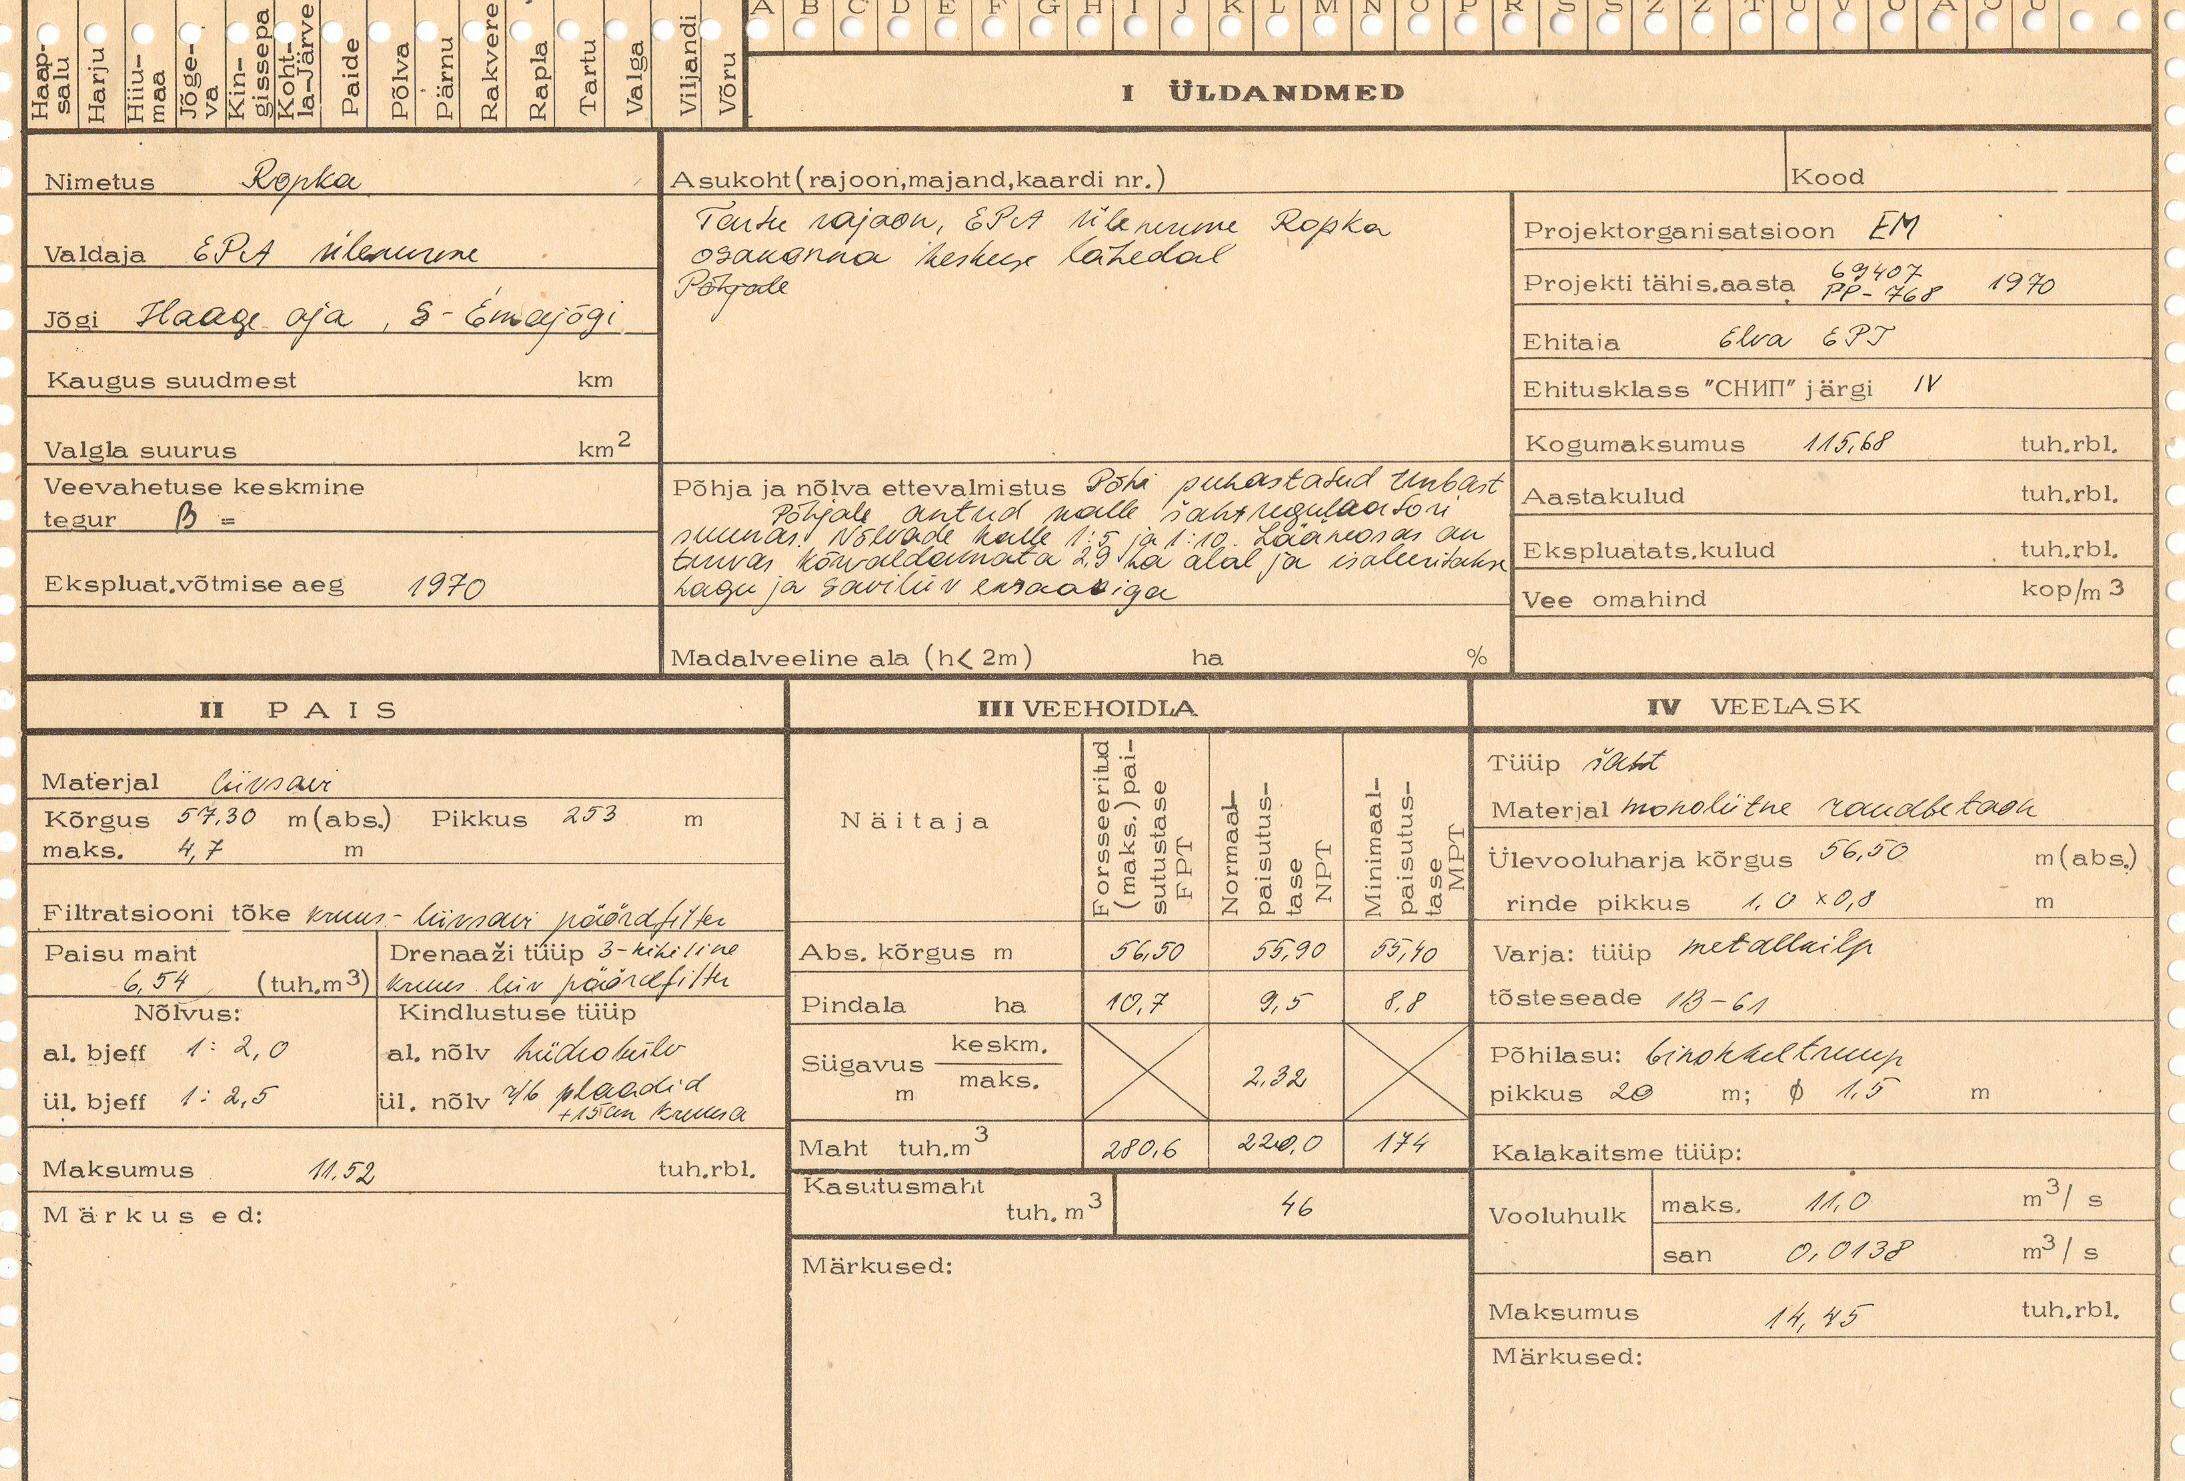 Haap-salu Harju Hiiu-maa Jõge-va Kin-gissepa Koht-la-Järve Paide Põlva Pärnu Rakvere Rapla Tartu Valga Viljandi Võru
A B C D E F G H I J K L M N O P R S Š Z Ž T U V Õ Ä Ö Ü
I ÜLDANDMED
Nimetus Ropka
Valdaja EPA Ülenurme
Jõgi Haage oja, S-Emajõgi
Kaugus suudmest km
Valgla suurus km2
Veevahetuse keskmine
tegur β =
Ekspluat.võtmise aeg 1970
Asukoht (rajoon,majand,kaardi nr.)
Tartu rajoon, EPA Ülenurme Ropka
osakonna keskuse lähedal
Põhjale
Põhja ja nõlva ettevalmistus Põhi puhastatud turbast
Põhjale antud kalle šahtregulaatori
suunas. Nõlvade kalle 1:5 ja 1:10. Lääneosas on
turvas kõrvaldamata 2,9 ha alal ja isoleeritakse
hagu ja saviliiv
Madalveeline ala (h< 2m) ha %
Kood
Projektorganisatsioon EM
Projekti tähis.aasta 69407 PP-768 1970
Ehitaja Elva EPT
Ehitusklass "СНИП" järgi IV
Kogumaksumus 115,68 tuh.rbl.
Aastakulud tuh.rbl.
Ekspluatats.kulud tuh.rbl.
Vee omahind kop/m3
II PAIS
Materjal liivsavi
Kõrgus 57,30 m(abs.) Pikkus 253 m
maks. 4,7 m
Filtratsiooni tõke kruus-liivsavi pöördfilter
Paisu maht
6,54 (tuh.m3)
Drenaaži tüüp 3-kihiline
kruus liiv pöördfilter
Nõlvus:
al. bjeff 1: 2,0
ül. bjeff 1: 2,5
Kindlustuse tüüp
al. nõlv hüdrokülv
ül. nõlv r/b plaadid
+15 cm kruusa
Maksumus 11,52 tuh.rbl.
Märkused:
III VEEHOIDLA
Näitaja
Forsseeritud (maks.) pai-sutustase FPT
Normaal-paisutus-tase NPT
Minimaal-paisutus-tase MPT
Abs. kõrgus m 56,50 55,90 55,40
Pindala ha 10,7 9,5 8,8
Sügavus m keskm. maks. 2,32
Maht tuh.m3 280,6 220,0 174
Kasutusmaht
tuh. m3 46
Märkused:
IV VEELASK
Tüüp šaht
Materjal monoliitne raudbetoon
Ülevooluharja kõrgus 56,50 m(abs.)
rinde pikkus 1,0 x 0,8 m
Varja: tüüp metallkilp
tõsteseade 1B-61
Põhilasu: binokkeltruup
pikkus 20 m; φ 1,5 m
Kalakaitsme tüüp:
Vooluhulk maks. 11,0 m3/s
san 0,0138 m3/s
Maksumus 14,45 tuh.rbl.
Märkused: